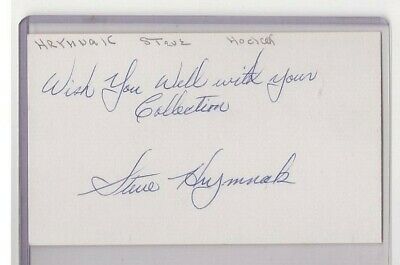 HRYMNAK STEVE HOCKEY
Wish You Well with your
Collection
Steve Hrymnak